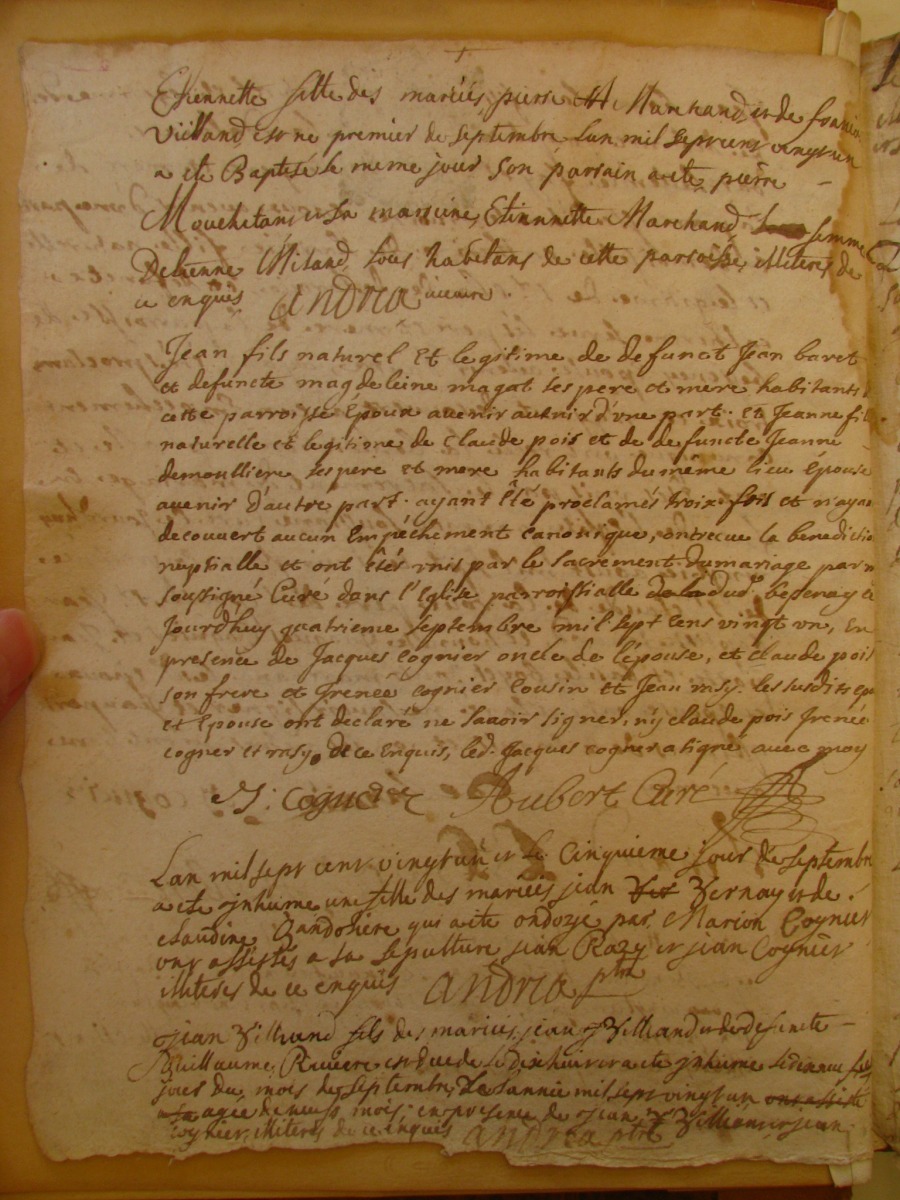 Etiennette fille des mariés pierre Marchand et de
Villand est ne premier de septembre lan mil sept cent vingt un
a ete Baptisé le meme jour son parrain a ete pierre
Mouchetant et sa marraine Etiennette Marchand femme
Detienne Miland tous habitans de cette paroisse illiteres de
ce enquis andréa vicaire
Jean fils naturel et legitime de defunct Jean baret
et defuncte magdeleine magat ses pere et mere habitants
cette parroisse Époux avenir avenir d'vne part. et Jeanne fil
naturelle et legitime de Claude pois et de defuncte Jeanne
demoulliere ses pere et mere habitants du même lieu Épouse
avenir d'autre part. ayant Êté proclamés troix fois et n'ayan
decouvert aucun Empéchement canonique, ont recue la benedictio
nuptialle et ont étés vnis par le Sacrement du mariage par n
soussigné Curé dans l'Eglise parroissialle bessenay ce
Jourdhuy quatrieme septembre mil sept cens vingt vn, en
presence de Jacques cognier oncle de l'épouse, et claude pois
son frere et Jrenée cognier cousin et Jean rasy. les susdits epo
et Epouse ont declaré ne sauoir signer, ny claude pois Jrenée
cogner et rasy, de ce Enquis, led. Jacques cogner a signé auec moy
J: cognier Aubert Curé
Lan mil sept cent vingt un et le Cinquieme jour de septembre
a ete Jnhume une fille des mariés jean Vernay et de
claudine Gandoliere qui a ete ondoyé par Marion Cognier
ont assistés a sa Sepulture jean Razy et jean Cognier
illiteres de ce enquis andréa ptre
Jean Villand fils des mariés jean Villiand et de defuncte
Guillaume Riviere est decede le dixhuit et a ete Jnhume le
jour du mois de Septembre Lannee mil sept vingt un
agee de neuf mois, en presence de Jean Villiand et jean
Cognier illiteres de ce enquis andréa ptre